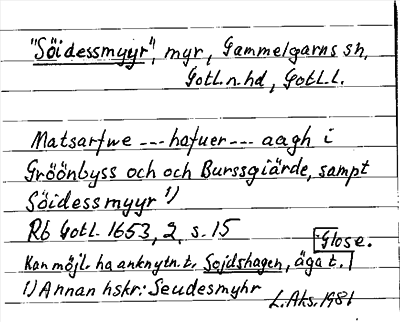 "Söidessmyyr", myr, Gammelgarns sn,
Gotl. n. hd, Gotl. l.
Matsarfwe --- hafuer --- aagh i
Gröönbyss och och Burssgiärde, sampt
Söidessmyyr 1)
Rb Gotl. 1653, 2, s. 15
Glose.
Kan möjl. ha anknytn. t. Sojdshagen, äga t.
1) Annan hskr: Seudesmyhr
L. Aks. 1981